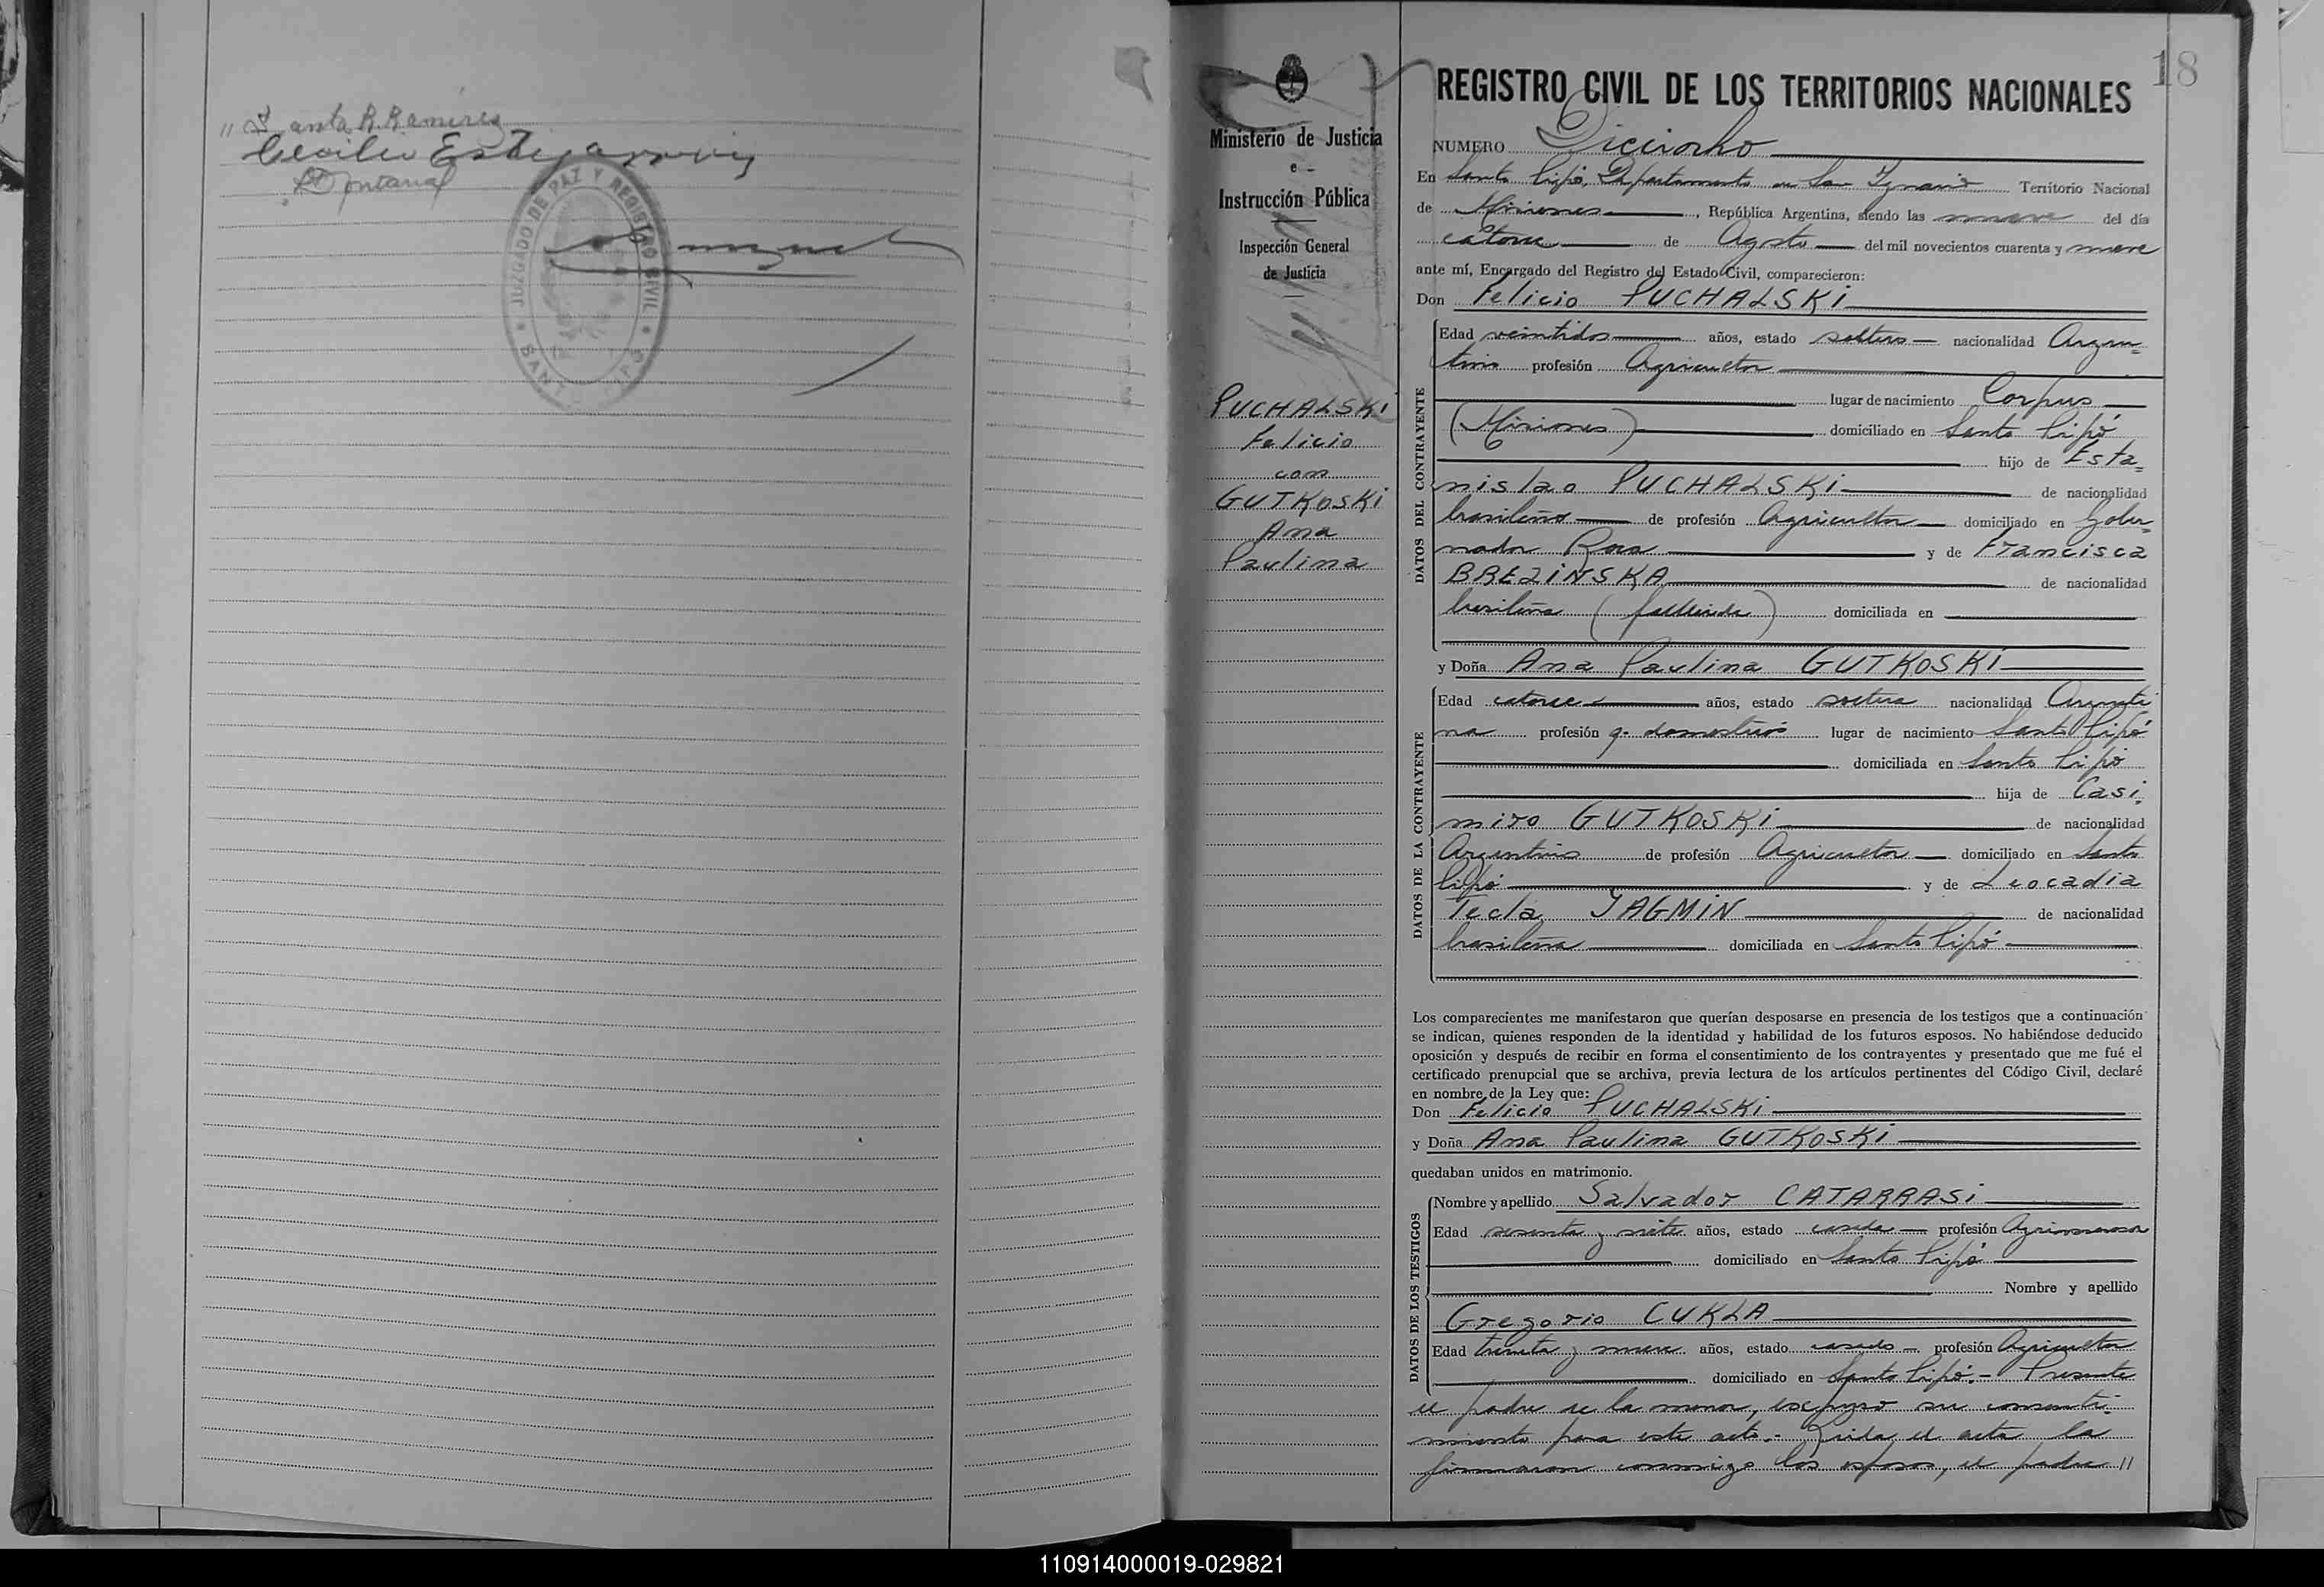 " Santa R. Ramirez
Cecilio Estigarribia
Fontana
JUZGADO DE PAZ Y REGISTRO CIVIL
SANTO PIPO
18
Ministerio de Justicia
e
Instrucción Pública
Inspección General
de Justicia
PUCHALSKI
Felicio
con
GUTKOSKI
Ana
Paulina
REGISTRO CIVIL DE LOS TERRITORIOS NACIONALES
NUMERO Dieciocho
En Santo Pipó, Departamento de San Ignacio Territorio Nacional
de Misiones, República Argentina, siendo las nueve del día
catorce de Agosto del mil novecientos cuarenta y nueve
ante mí, Encargado del Registro del Estado Civil, comparecieron:
Don Felicio PUCHALSKI
DATOS DEL CONTRAYENTE
Edad veintidos años, estado soltero nacionalidad Argen=
tino profesión Agricultor
lugar de nacimiento Corpus
(Misiones) domiciliado en Santo Pipó
hijo de Esta=
nislao PUCHALSKI de nacionalidad
brasileño de profesión Agricultor domiciliado en Gober=
nador Roca y de Francisca
BREZINSKA de nacionalidad
brasileña (fallecida) domiciliada en
y Doña Ana Paulina GUTKOSKI
DATOS DE LA CONTRAYENTE
Edad catorce años, estado soltera nacionalidad Argenti
na profesión q. domésticos lugar de nacimiento Santo Pipó
domiciliada en Santo Pipó
hija de Casi=
miro GUTKOSKI de nacionalidad
Argentino de profesión Agricultor domiciliado en Santo
Pipó y de Leocadia
Tecla JAGMIN de nacionalidad
brasileña domiciliada en Santo Pipó
Los comparecientes me manifestaron que querían desposarse en presencia de los testigos que a continuación
se indican, quienes responden de la identidad y habilidad de los futuros esposos. No habiéndose deducido
oposición y después de recibir en forma el consentimiento de los contrayentes y presentado que me fué el
certificado prenupcial que se archiva, previa lectura de los artículos pertinentes del Código Civil, declaré
en nombre de la Ley que:
Don Felicio PUCHALSKI
y Doña Ana Paulina GUTKOSKI
quedaban unidos en matrimonio.
DATOS DE LOS TESTIGOS
Nombre y apellido Salvador CATARRASI
Edad sesenta y siete años, estado casado profesión Agrimensor
domiciliado en Santo Pipó
Nombre y apellido
Gregorio CUKLA
Edad treinta y nueve años, estado casado profesión Agricultor
domiciliado en Santo Pipó.- Presente
el padre de la menor, expuso su consenti=
miento para este acto.- Leida el acta la
firmaron conmigo los esposos, el padre //
110914000019-029821